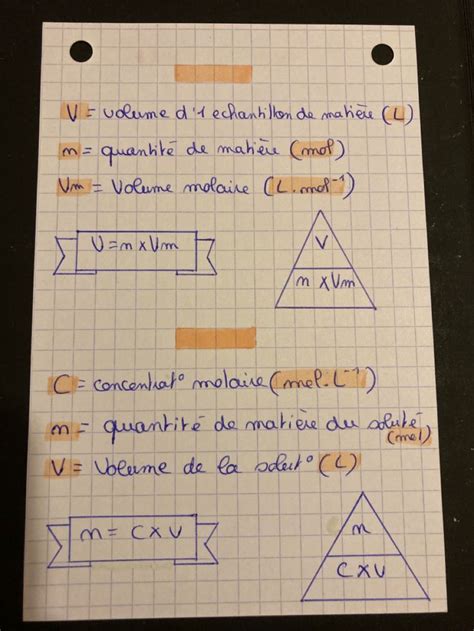 V = volume d'1 echantillon de matière (L)
n = quantité de matière (mol)
Vm = Volume molaire (L.mol⁻¹)
V = n x Vm
V
n x Vm
C = concentrat° molaire (mol.L⁻¹)
n = quantité de matière du soluté
(mol)
V = Volume de la solut° (L)
n = C x V
n
C x V